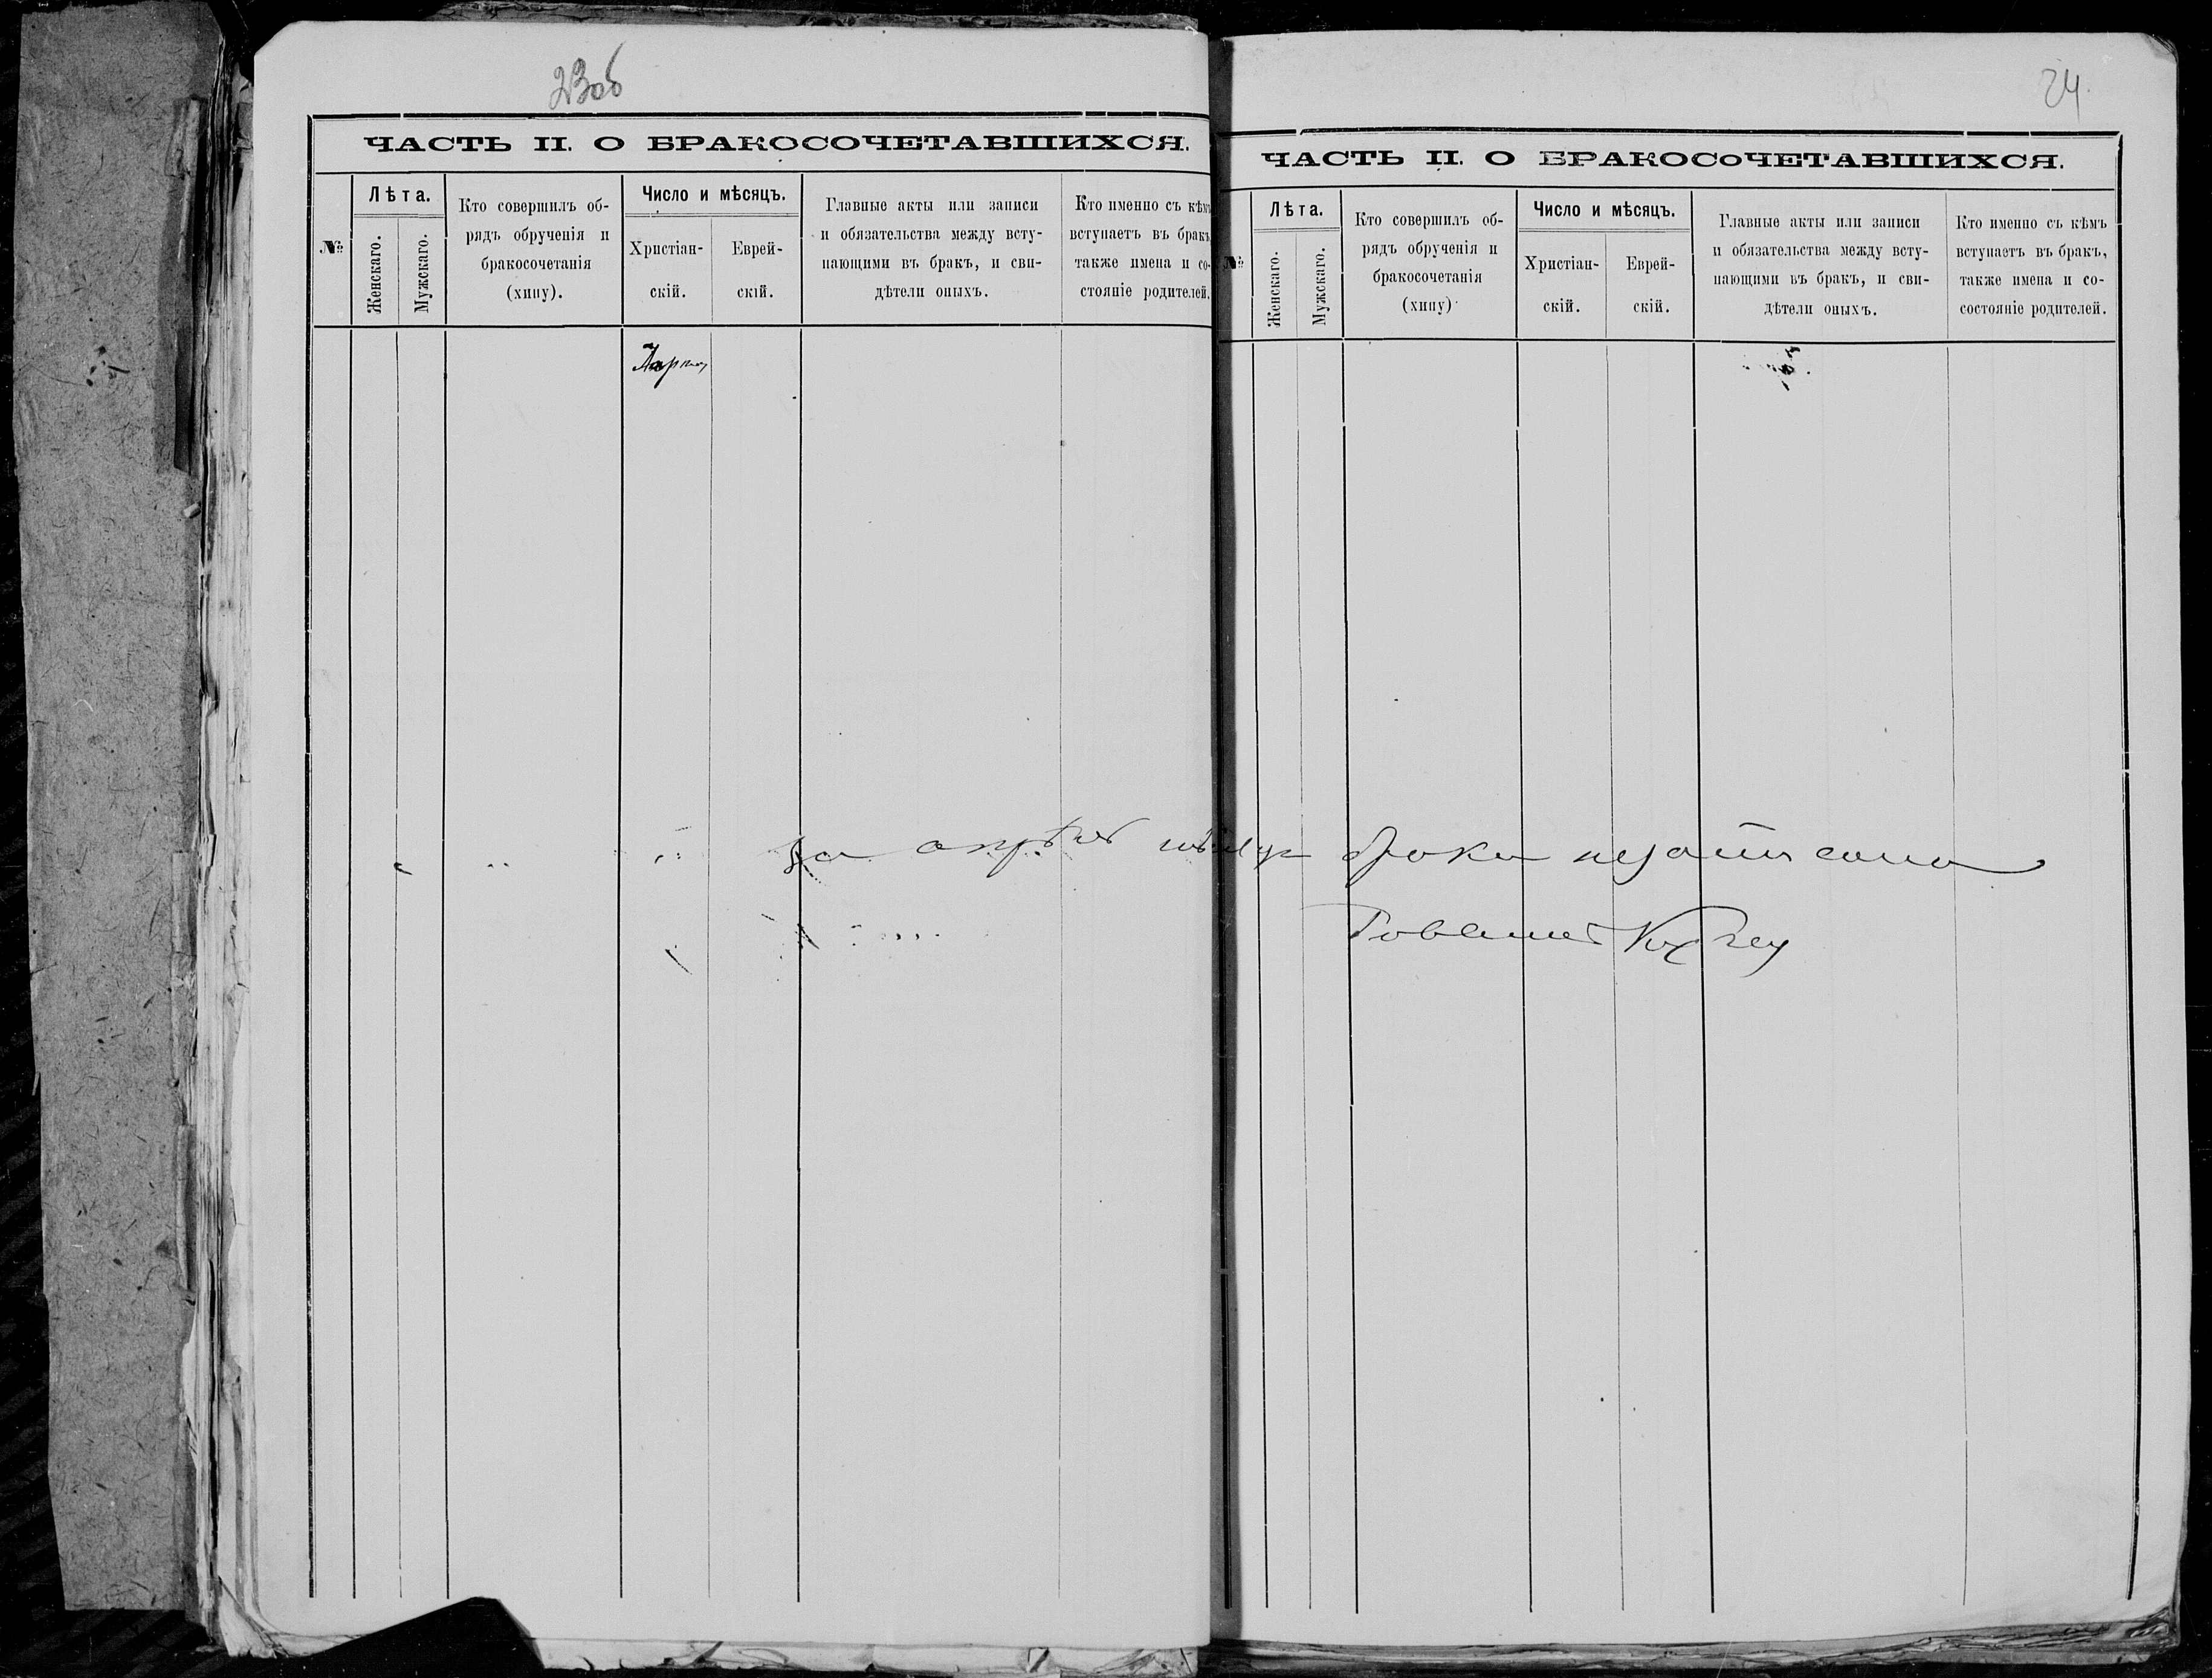 23об
ЧАСТЬ II. О БРАКОСОЧЕТАВШИХСЯ.
№
Лѣта.
Женскаго.
Мужскаго.
Кто совершилъ об-
рядъ обрученія и
бракосочетанія
(хипу).
Число и мѣсяцъ.
Христіан-
скій.
Еврей-
скій.
Главные акты или записи
и обязательства между всту-
пающими въ бракъ, и сви-
дѣтели оныхъ.
Кто именно съ кѣмъ
вступаетъ въ бракъ
также имена и со-
стояніе родителей.
24.
ЧАСТЬ II. О БРАКОСОЧЕТАВШИХСЯ.
№
Лѣта.
Женскаго.
Мужскаго.
Кто совершилъ об-
рядъ обрученія и
бракосочетанія
(хипу)
Число и мѣсяцъ.
Христіан-
скій.
Еврей-
скій.
Главные акты или записи
и обязательства между всту-
пающими въ бракъ, и сви-
дѣтели оныхъ.
Кто именно съ кѣмъ
вступаетъ въ бракъ,
также имена и со-
состояніе родителей.
за